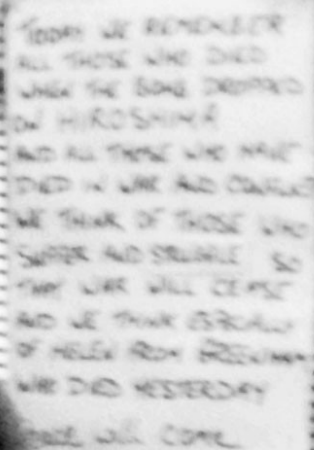 TODAY WE REMEMBER
ALL THOSE WHO DIED
WHEN THE BOMB DROPPED
ON HIROSHIMA
AND ALL THOSE WHO HAVE
DIED IN WAR AND CONFLICT
WE THINK OF THOSE WHO
SUFFER AND STRUGGLE SO
THAT WAR WILL CEASE
AND WE THINK ESPECIALLY
OF HELEN FROM
WHO DIED YESTERDAY
PEACE WILL COME